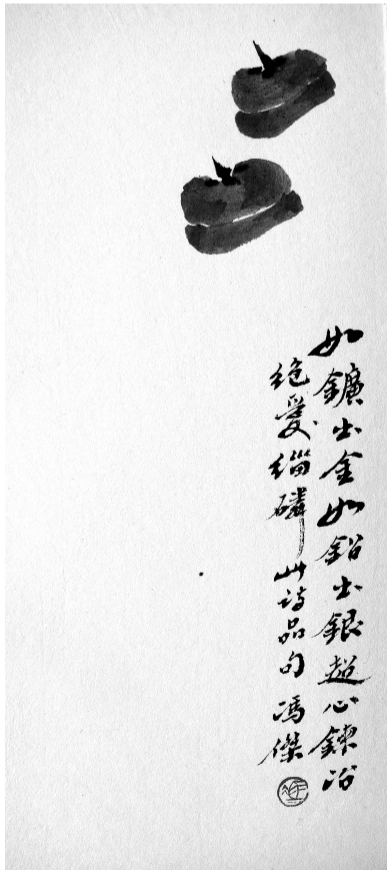 如鑛出金如鉛出銀超心鍊冶
絶愛緇磷此詩品句馮傑